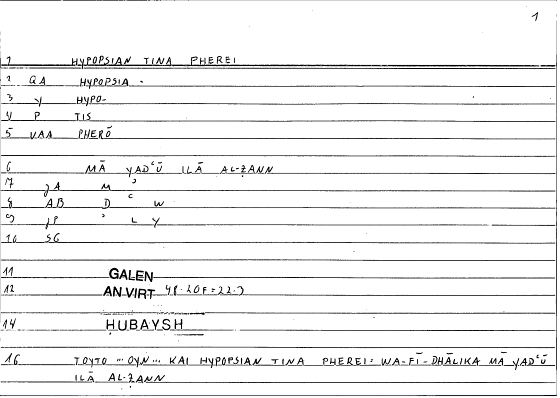 1
1 HYPOPSIAN TINA PHEREI
2 QA HYPOPSIA -
3 Y HYPO-
4 P TIS
5 VAA PHERŌ
6 MĀ YADʿŪ ILĀ AL-ẒANN
7 JA M ʾ
8 AB D ʿ W
9 JP ʾ L Y
10 SG
11 GALEN
12 AN.VIRT 48.20F=22.9
14 ḤUBAYSH
16 TOYTO ... OYN ... KAI HYPOPSIAN TINA PHEREI: WA-FĪ-DHĀLIKA MĀ YADʿŪ
ILĀ AL-ẒANN